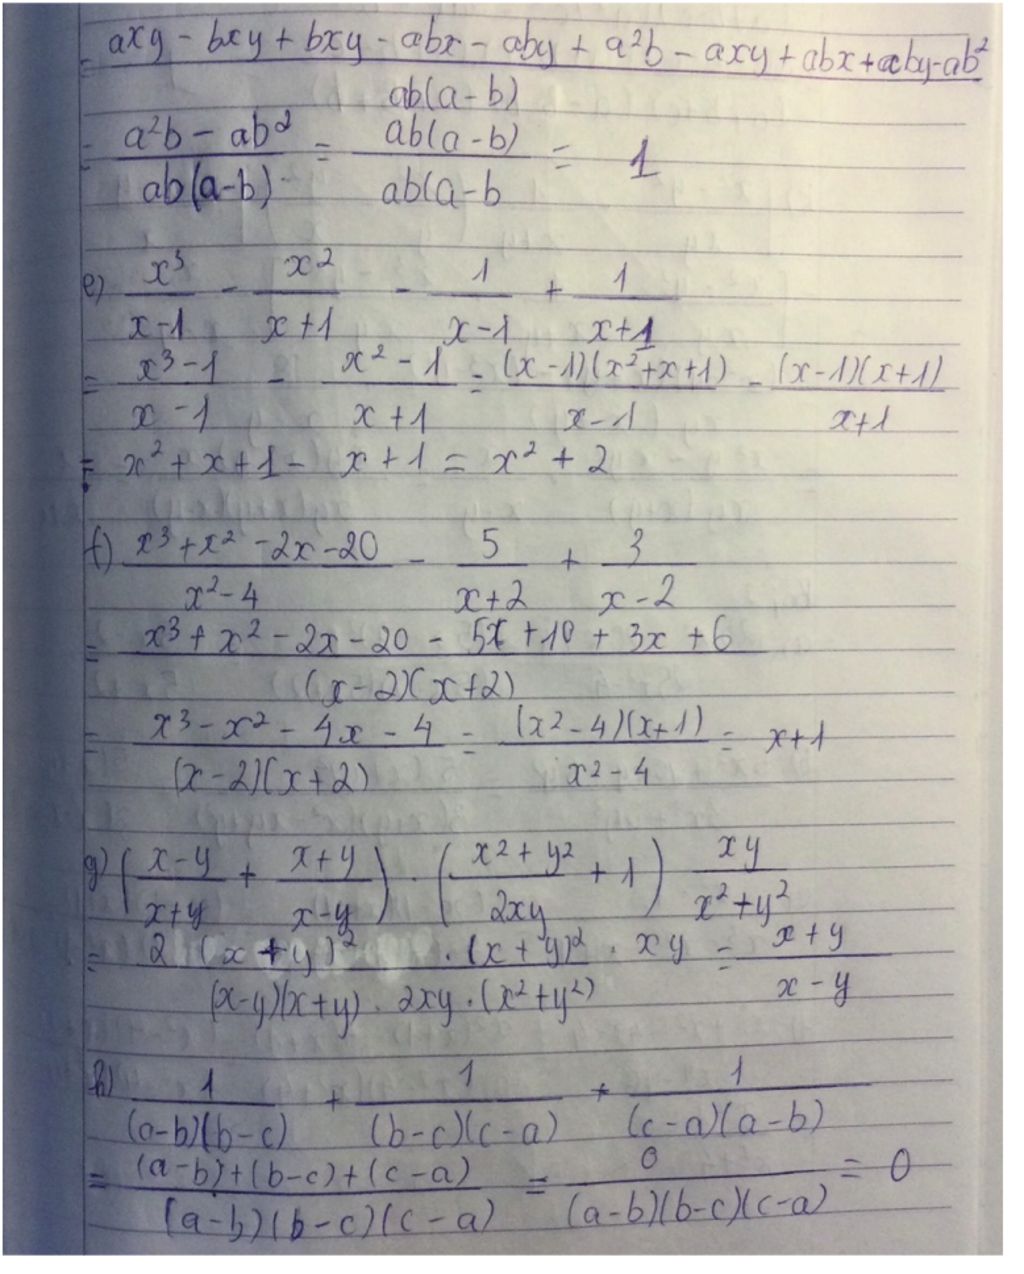 = axy - bxy + bxy - abx - aby + a²b - axy + abx + aby - ab² / ab(a-b)
= a²b - ab² / ab(a-b) = ab(a-b) / ab(a-b = 1
e) x³ / x-1 - x² / x+1 - 1 / x-1 + 1 / x+1
= x³-1 / x-1 - x²-1 / x+1 = (x-1)(x²+x+1) / x-1 - (x-1)(x+1) / x+1
= x² + x + 1 - x + 1 = x² + 2
f) x³+x²-2x-20 / x²-4 - 5 / x+2 + 3 / x-2
= x³ + x² - 2x - 20 - 5x + 10 + 3x + 6 / (x-2)(x+2)
= x³ - x² - 4x - 4 / (x-2)(x+2) = (x²-4)(x+1) / x²-4 = x+1
g) (x-y / x+y + x+y / x-y) . (x²+y² / 2xy + 1) xy / x²+y²
= 2 (x+y)² . (x+y)² . xy / (x-y)(x+y) . 2xy . (x²+y²) = x+y / x-y
h) 1 / (a-b)(b-c) + 1 / (b-c)(c-a) + 1 / (c-a)(a-b)
= (a-b)+(b-c)+(c-a) / (a-b)(b-c)(c-a) = 0 / (a-b)(b-c)(c-a) = 0